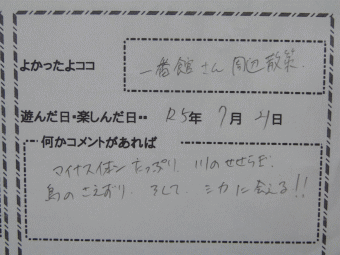 よかったよココ 一番館さん 周辺散策.
遊んだ日・楽しんだ日・・ R5年 7月 21日
何かコメントがあれば
マイナスイオン たっぷり. 川のせせらぎ.
鳥のさえずり. そして. シカに会える!!